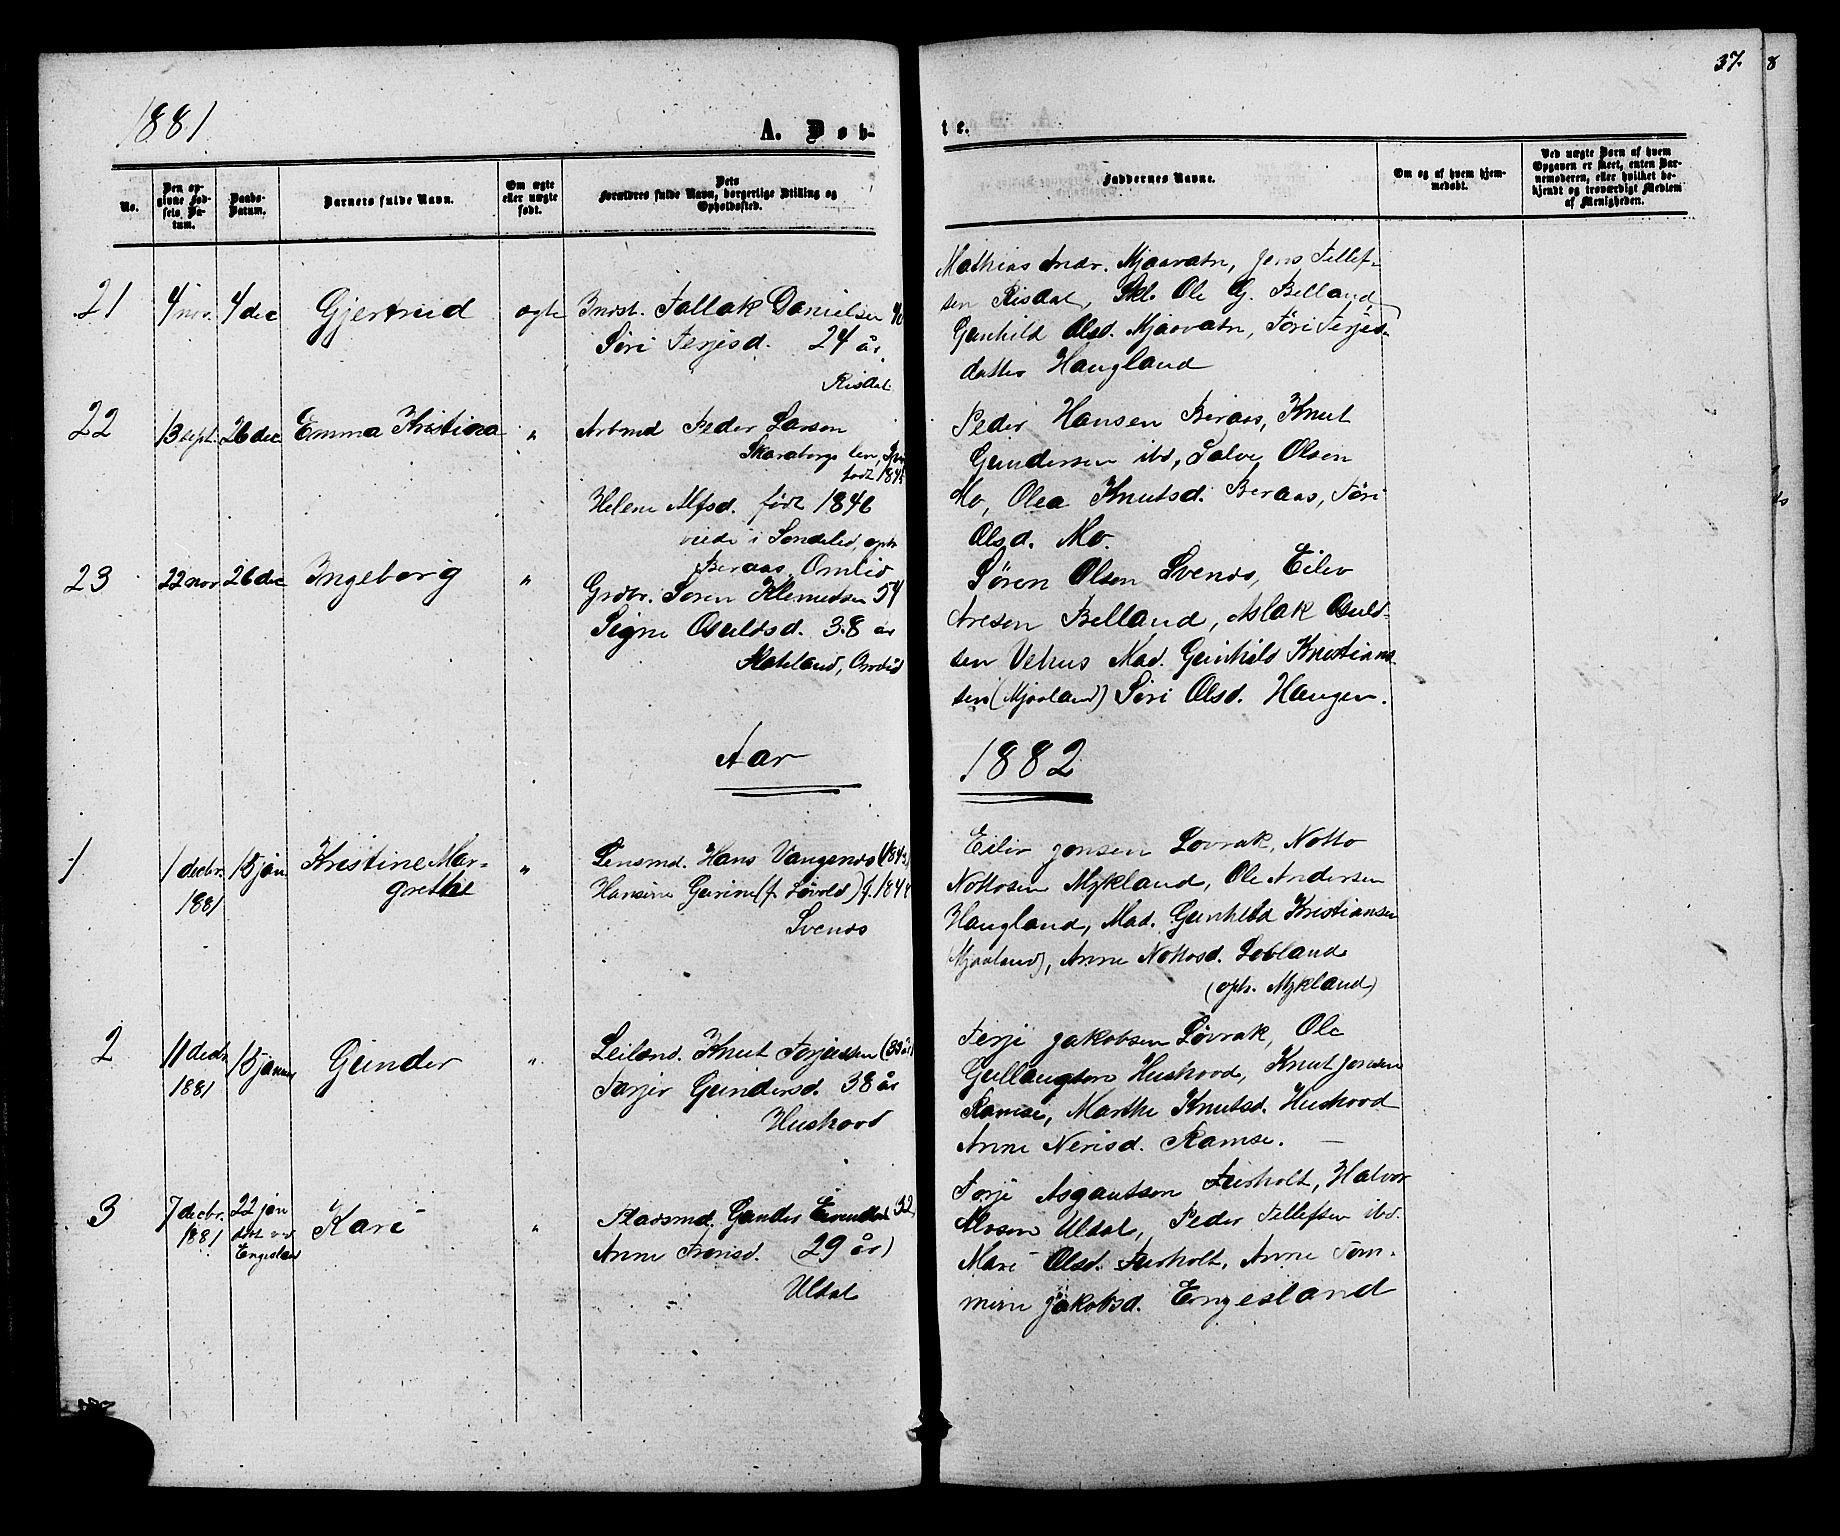 1881
A. Døb-
te.
37.
8
No.
Den op-
givne Fød-
sels Da-
tum.
Daabs-
Datum.
Barnets fulde Navn.
Om ægte
eller uægte
født.
Dets
Forældres fulde Navn, borgerlige Stilling og
Opholdssted.
Faddernes Navne.
Om og af hvem hjem-
medøbt.
Ved uægte Børn af hvem
Opgaven er skeet, enten Bar-
nemoderen, eller hvilket be-
kjendt og troværdigt Medlem
af Menigheden.
21
4 nov.
4 dec
Gjertrud
ægte
Indst. Tallak Danielsen 40
Siri Terjesd. 24 år
Risdal
Mathias Andr. Mjaavatn, Jens Tellef-
sen Risdal, Skl. Ole G. Belland,
Gunhild Olsd. Mjaavatn, Siri Terjes-
datter Haugland
22
13 sept.
26 dec
Emma Kristina
"
Arbmd Peder Larson
Skaraborgs len,
født 184
Helene Alfsd. født 1846
viede i Søndeled, oph
Beraas, Omlid
Peder Hansen Beraas, Knut
Gundersen ibd, Salve Olsen
Mo, Olea Knutsd. Beraas, Siri
Olsd. Mo.
23
22 nov
26 dec
Ingeborg
"
Grdbr. Søren Klemedsen 54
Signe Osuldsd. 38 år
Hateland, Omlid
Søren Olsen Svenøs, Eilev
Aresen Belland, Aslak Osuld-
sen Vehus Mad. Gunhild Kristian-
sen (Mjaaland) Siri Olsd. Haugen.
Aar
1882
1
1 decbr.
1881
15 jan
Kristine Mar-
grethe
"
Lensmd. Hans Vangenøs (184
Hansine Gurine (f. Løvold) f. 184
Svenøs
Eiliv Jonsen Lovrak, Notto
Nottosen Mykland, Ole Andersen
Haugland, Mad. Gunhild Kristiansen
Mjaaland), Anne Nottosd. Lobland
(oph. Mykland)
2
11 decbr
1881
15 januar
Gunder
"
Leilænd. Knut Terjussen (39 år)
Tarjer Gundersd. 38 år
Hushovd
Terje Jakobsen Løvrak, Ole
Gullaugson Hushovd, Knut Jonsen
Ramse, Marthe Knutsd. Hushovd
Anne Nerisd. Ramse.
3
7 decbr.
1881
22 jan
døbt ved
Engesland
Kari
"
Pladsmd. Gunder 32
Anne Tronsd. (29 år)
Uldal
Terje Asgautson Furholt, Halvor
Alvsen Uldal, Peder Tellefsen ibd.
Mari Olsd. Furholt, Anne Tom-
mine Jakobsd. Engesland